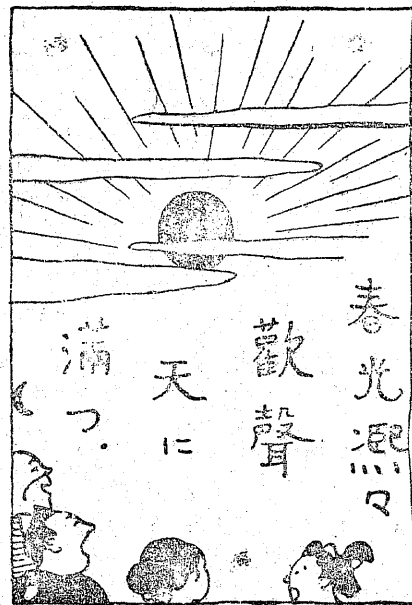 春光熙々
歡聲
天に
満つ.